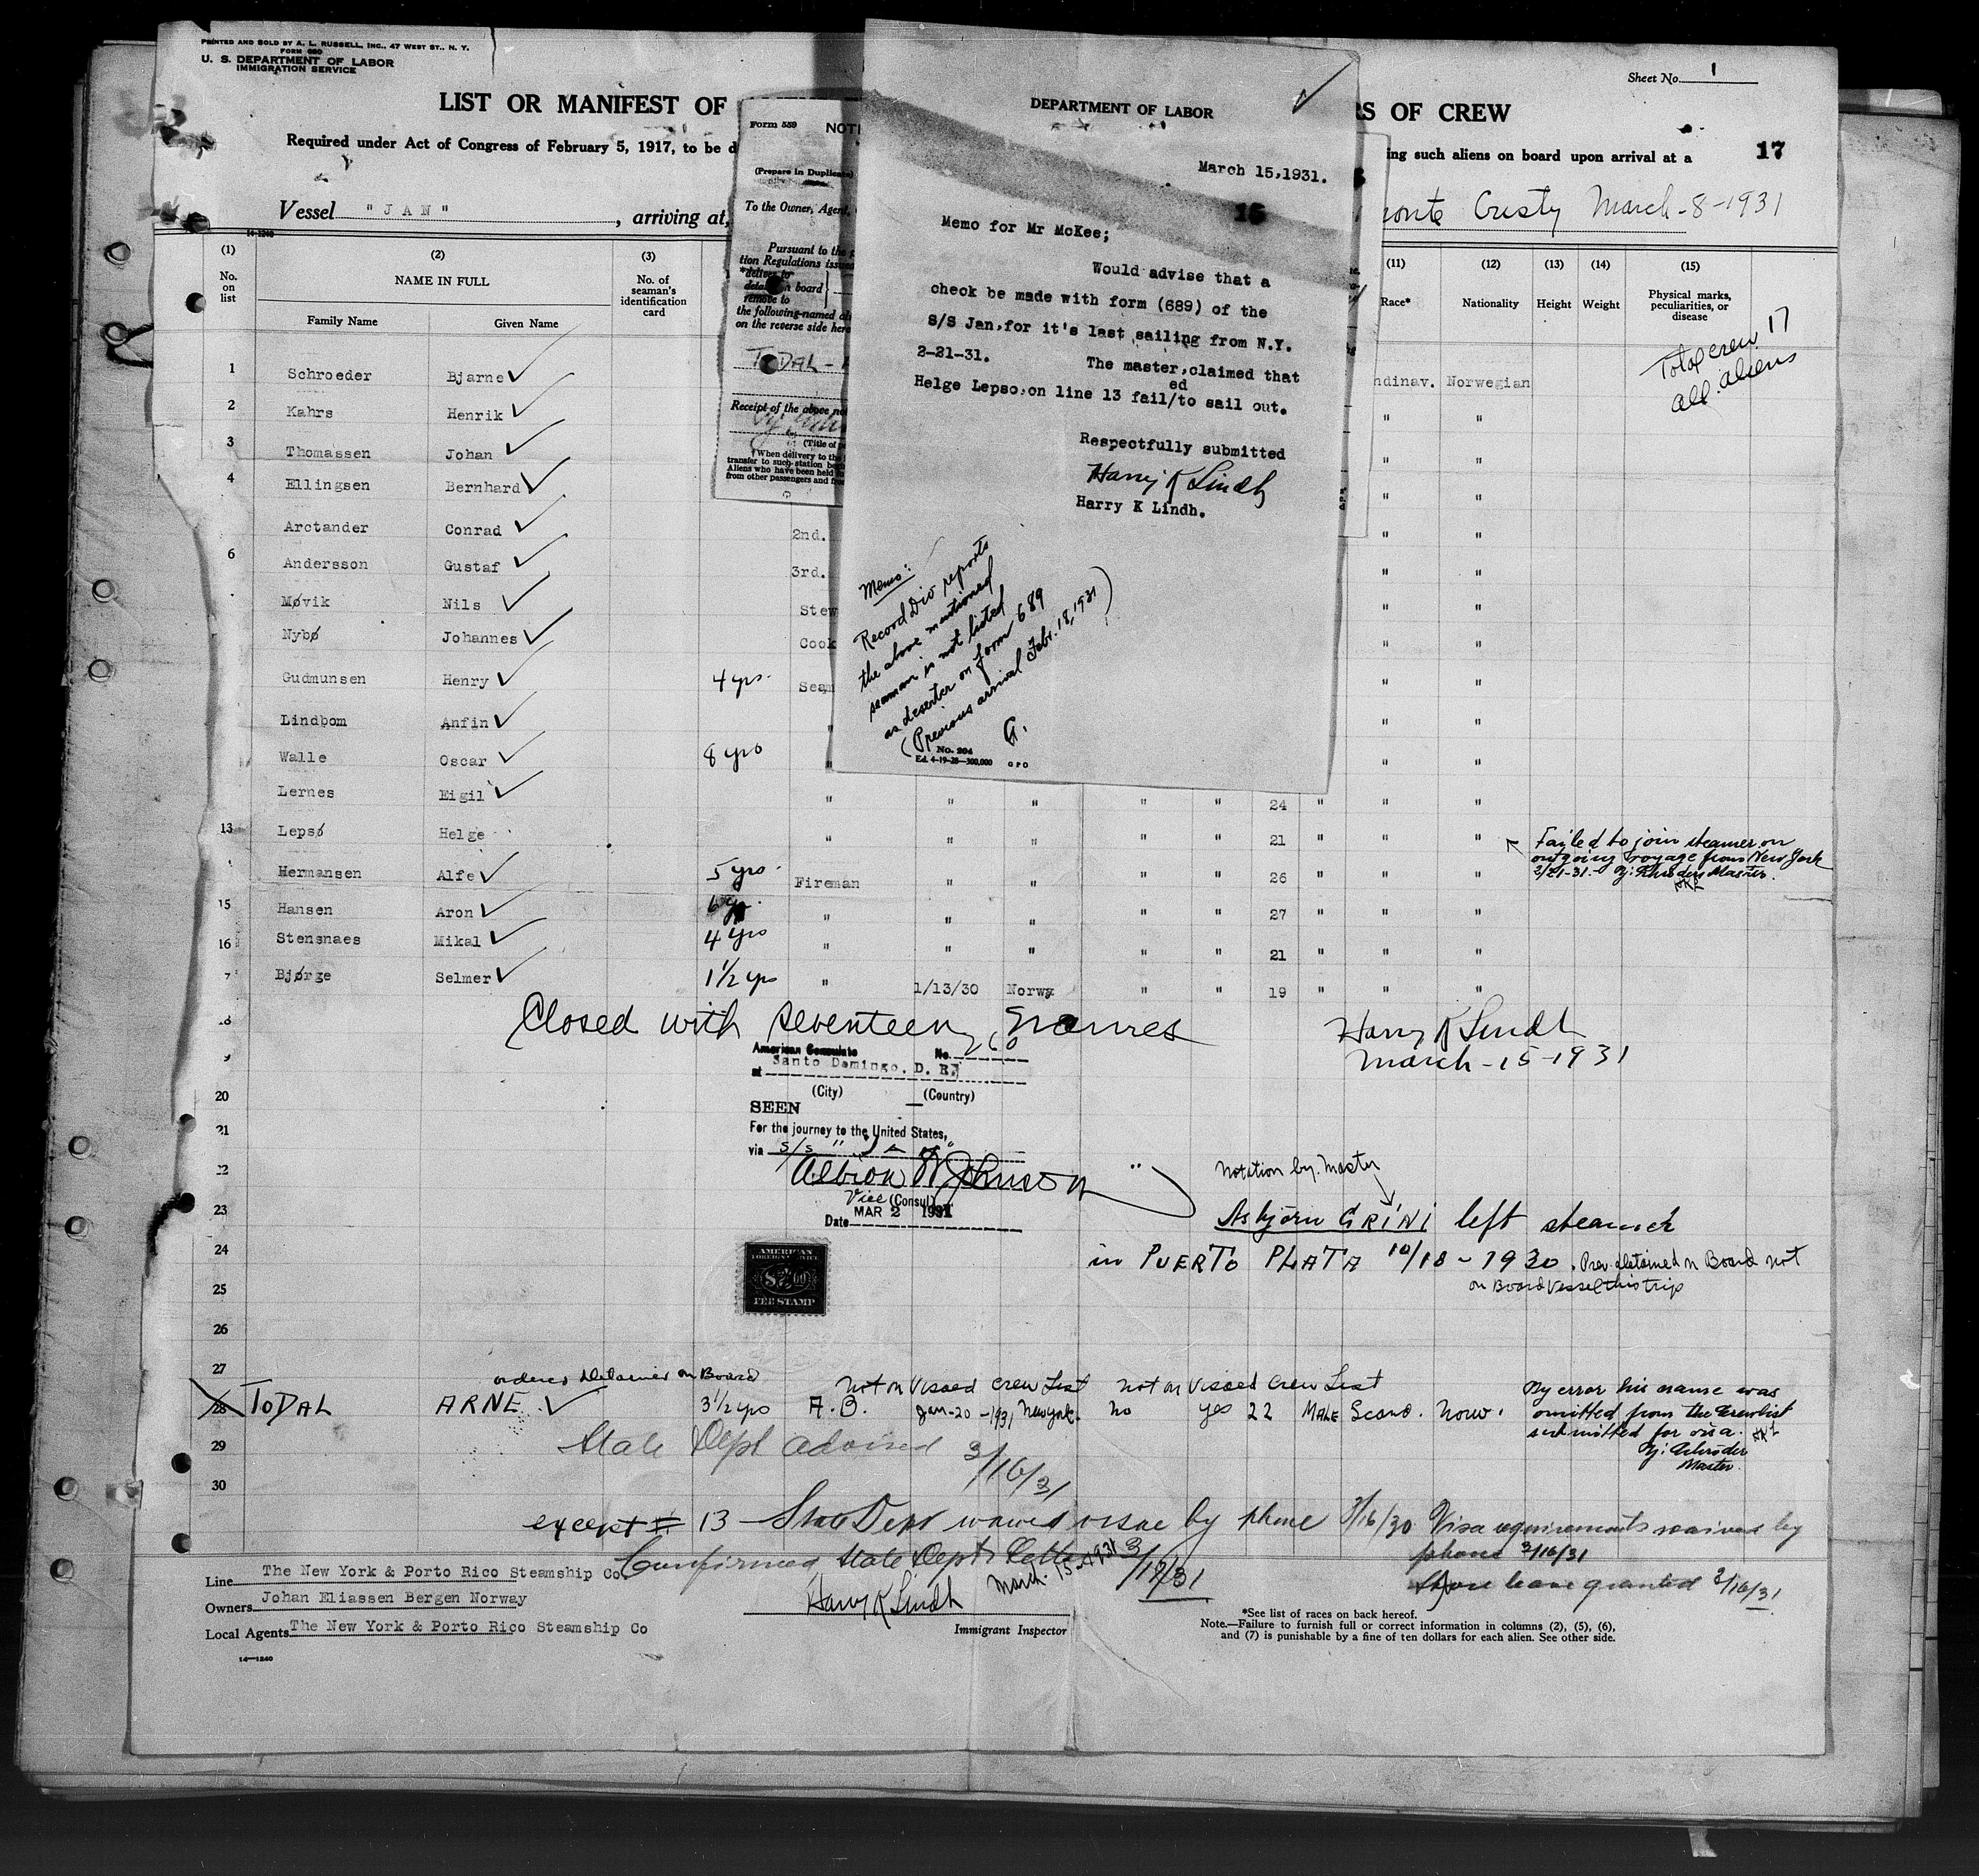 PRINTED AND SOLD BY A. L. RUSSELL, INC., 47 WEST ST., N. Y.
FORM 680
U. S. DEPARTMENT OF LABOR
IMMIGRATION SERVICE
Sheet No. 1
LIST OR MANIFEST OF
RS OF CREW
Required under Act of Congress of February 5, 1917, to be d
ing such aliens on board upon arrival at a
17
Vessel "JAN", arriving at,
Cristy March-8-1931
14-1240
(1) No. on list
(2) NAME IN FULL
Family Name Given Name
(3) No. of seaman's identification card
(11) Race*
(12) Nationality
(13) Height
(14) Weight
(15) Physical marks, peculiarities, or disease
Total crew 17
all aliens
Form 559 NOTI
(Prepare in Duplicate)
To the Owner, Agent,
Pursuant to the
tion Regulations issued
*deliver to
detain on board
remove to
the following-named al
on the reverse side here
TODAL - A
Receipt of the above no
(Title of
*When delivery to the
transfer to such station be
Aliens who have been held
from other passengers and fro
DEPARTMENT OF LABOR
March 15,1931.
15
Memo for Mr McKee;
Would advise that a
check be made with form (689) of the
S/S Jan,for it's last sailing from N.Y.
2-21-31. The master,claimed that
Helge Lepso,on line 13 fail/ed to sail out.
Respectfully submitted
Harry K Lindh
Harry K Lindh.
Memo:
Record Div reports
the above mentioned
seaman is not listed
as deserter on form 689
(Previous arrival Febr. 18, 1931)
G.
No. 204
Ed. 4-19-28—300,000 GPO
1 Schroeder Bjarne ndinav. Norwegian
2 Kahrs Henrik " "
3 Thomassen Johan " "
4 Ellingsen Bernhard " "
Arctander Conrad 2nd. " "
6 Andersson Gustaf 3rd. " "
Møvik Nils Stew " "
Nybø Johannes Cook " "
Gudmunsen Henry 4 yrs. Seam " "
Lindbom Anfin " " "
Walle Oscar 8 yrs " " "
Lernes Eigil " " " " " 24 " " "
13 Lepsø Helge " " " " " 21 " " "
Failed to join steamer on
outgoing voyage from New York
2/21-31.- Master.
Hermansen Alfe 5 yrs. Fireman " " " " 26 " " "
15 Hansen Aron 6 yr. " " " " " 27 " " "
16 Stensnaes Mikal 4 yrs " " " " " 21 " " "
7 Bjørge Selmer 1 1/2 yrs " 1/13/30 Norwy " " 19 " " "
Closed with seventeen names
Harry K Lindh
March-15-1931
18
9
20
21
22
23
24
25
26
27
American Consulate No. 260
at Santo Domingo, D. R.
(City) (Country)
SEEN
For the journey to the United States,
via S/S "Jan"
Albion W Johnson
Vice (Consul)
Date MAR 2 1931
AMERICAN
FOREIGN SERVICE
FEE STAMP
Notation by. Master
Asbjørn GRINI left steamer
in PUERTO PLATA 10/18-1930. Prev. detained on Board not
on Board vessel this trip
ordered detained on Board
Not on Visaed Crew List Not on Visaed Crew List
28 TODAL ARNE 3 1/2 yrs A.B. Jan-20-1931 New York. No yes 22 MALE Scand. Norw.
By error his name was
omitted from the crewlist
submitted for visa.
Bj: Schrøder
Master.
29
State Dept advised 3/16/31
30
except # 13 State Dept waived visae by phone 3/16/30
Visa requirements waived by
phone 3/16/31
Shore leave granted 3/16/31
Confirmed State Dept's Letter 3/18/31
Line The New York & Porto Rico Steamship Co.
Owners Johan Eliassen Bergen Norway
Local Agents The New York & Porto Rico Steamship Co
Harry K Lindh March. 15-1931
Immigrant Inspector
*See list of races on back hereof.
Note.—Failure to furnish full or correct information in columns (2), (5), (6),
and (7) is punishable by a fine of ten dollars for each alien. See other side.
14—1240